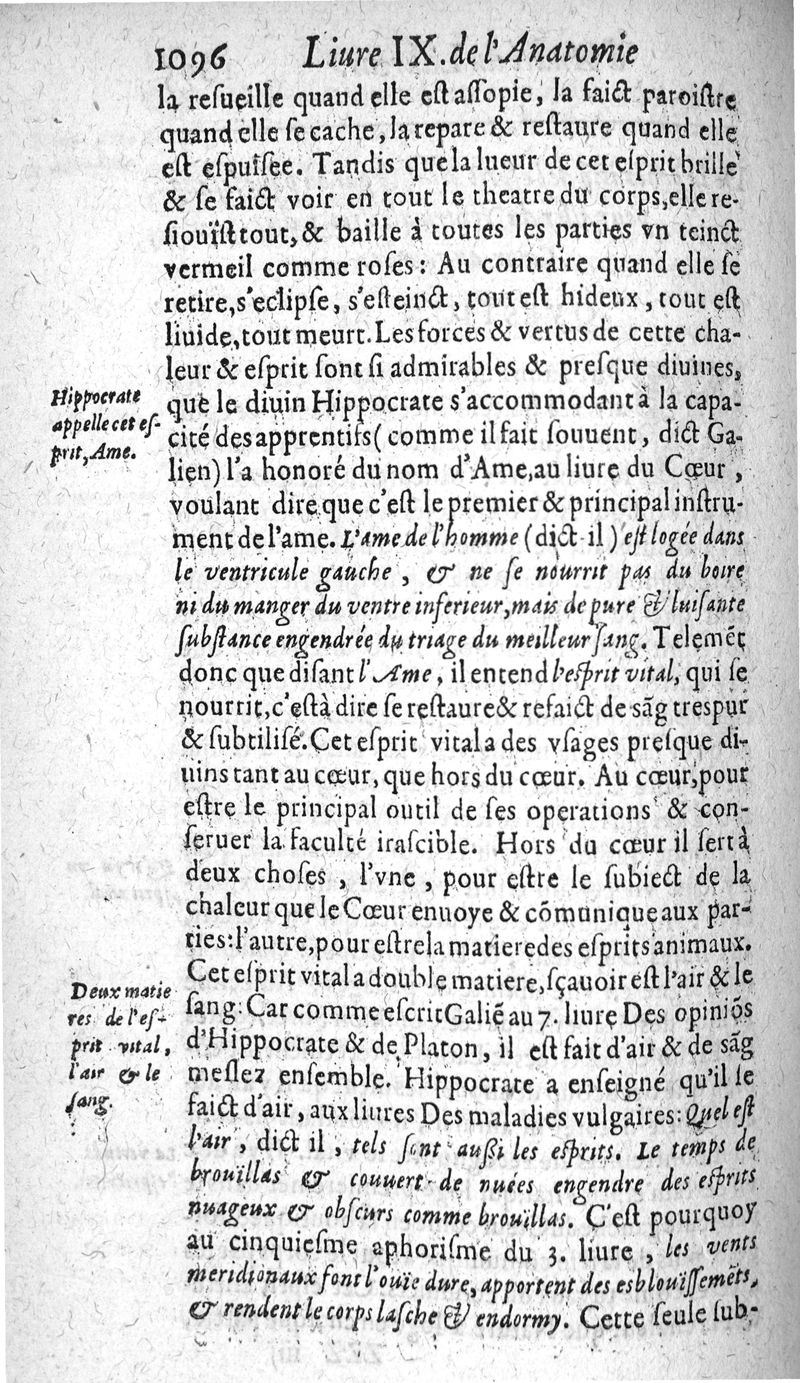 1096 Liure IX. de l'Anatomie
la reſueille quand elle eſt aſſopie, la faict paroiſtre
quand elle ſe cache, la repare & reſtaure quand elle
eſt eſpuiſee. Tandis que la lueur de cet eſprit brille
& ſe faict voir en tout le theatre du corps, elle re-
ſiouïſt tout, & baille à toutes les parties vn teinct
vermeil comme roſes: Au contraire quand elle ſe
retire, s'eclipſe, s'eſteinct, tout eſt hideux, tout eſt
liuide, tout meurt. Les forces & vertus de cette cha-
leur & eſprit ſont ſi admirables & preſque diuines,
que le diuin Hippocrate s'accommodant à la capa-
cité des apprentifs (comme il fait ſouuent, dict Ga-
lien) l'a honoré du nom d'Ame, au liure du Cœur,
voulant dire que c'eſt le premier & principal inſtru-
ment de l'ame. L'ame de l'homme (dict il) eſt logée dans
le ventricule gauche, & ne ſe nourrit pas du boire
ni du manger du ventre inferieur, mais de pure & luiſante
ſubſtance engendrée du triage du meilleur ſang. Telemēt
donc que diſant l'Ame, il entend l'eſprit vital, qui ſe
nourrit, c'eſt à dire ſe reſtaure & refaict de sāg trespur
& ſubtiliſé. Cet eſprit vital a des vſages preſque di-
uins tant au cœur, que hors du cœur. Au cœur, pour
eſtre le principal outil de ſes operations & con-
ſeruer la faculté iraſcible. Hors du cœur il ſert à
deux choſes, l'vne, pour eſtre le ſubiect de la
chaleur que le Cœur enuoye & cōmunique aux par-
ties: l'autre, pour eſtre la matiere des eſprits animaux.
Cet eſprit vital a double matiere, ſçauoir eſt l'air & le
ſang: Car comme eſcrit Galiē au 7. liure Des opiniōs
d'Hippocrate & de Platon, il eſt fait d'air & de sāg
meſlez enſemble. Hippocrate a enſeigné qu'il ſe
faict d'air, aux liures Des maladies vulgaires: Quel eſt
l'air, dict il, tels ſont auſſi les eſprits. Le temps de
brouïllas & couuert de nuées engendre des eſprits
nuageux & obſcurs comme brouïllas. C'eſt pourquoy
au cinquieſme aphoriſme du 3. liure, les vents
meridionaux font l'ouïe dure, apportent des esblouïſſemēts,
& rendent le corps laſche & endormy. Cette ſeule ſub-
Hippocrate
appelle cet eſ-
prit, Ame.
Deux matie
res de l'eſ-
prit vital,
l'air & le
ſang.